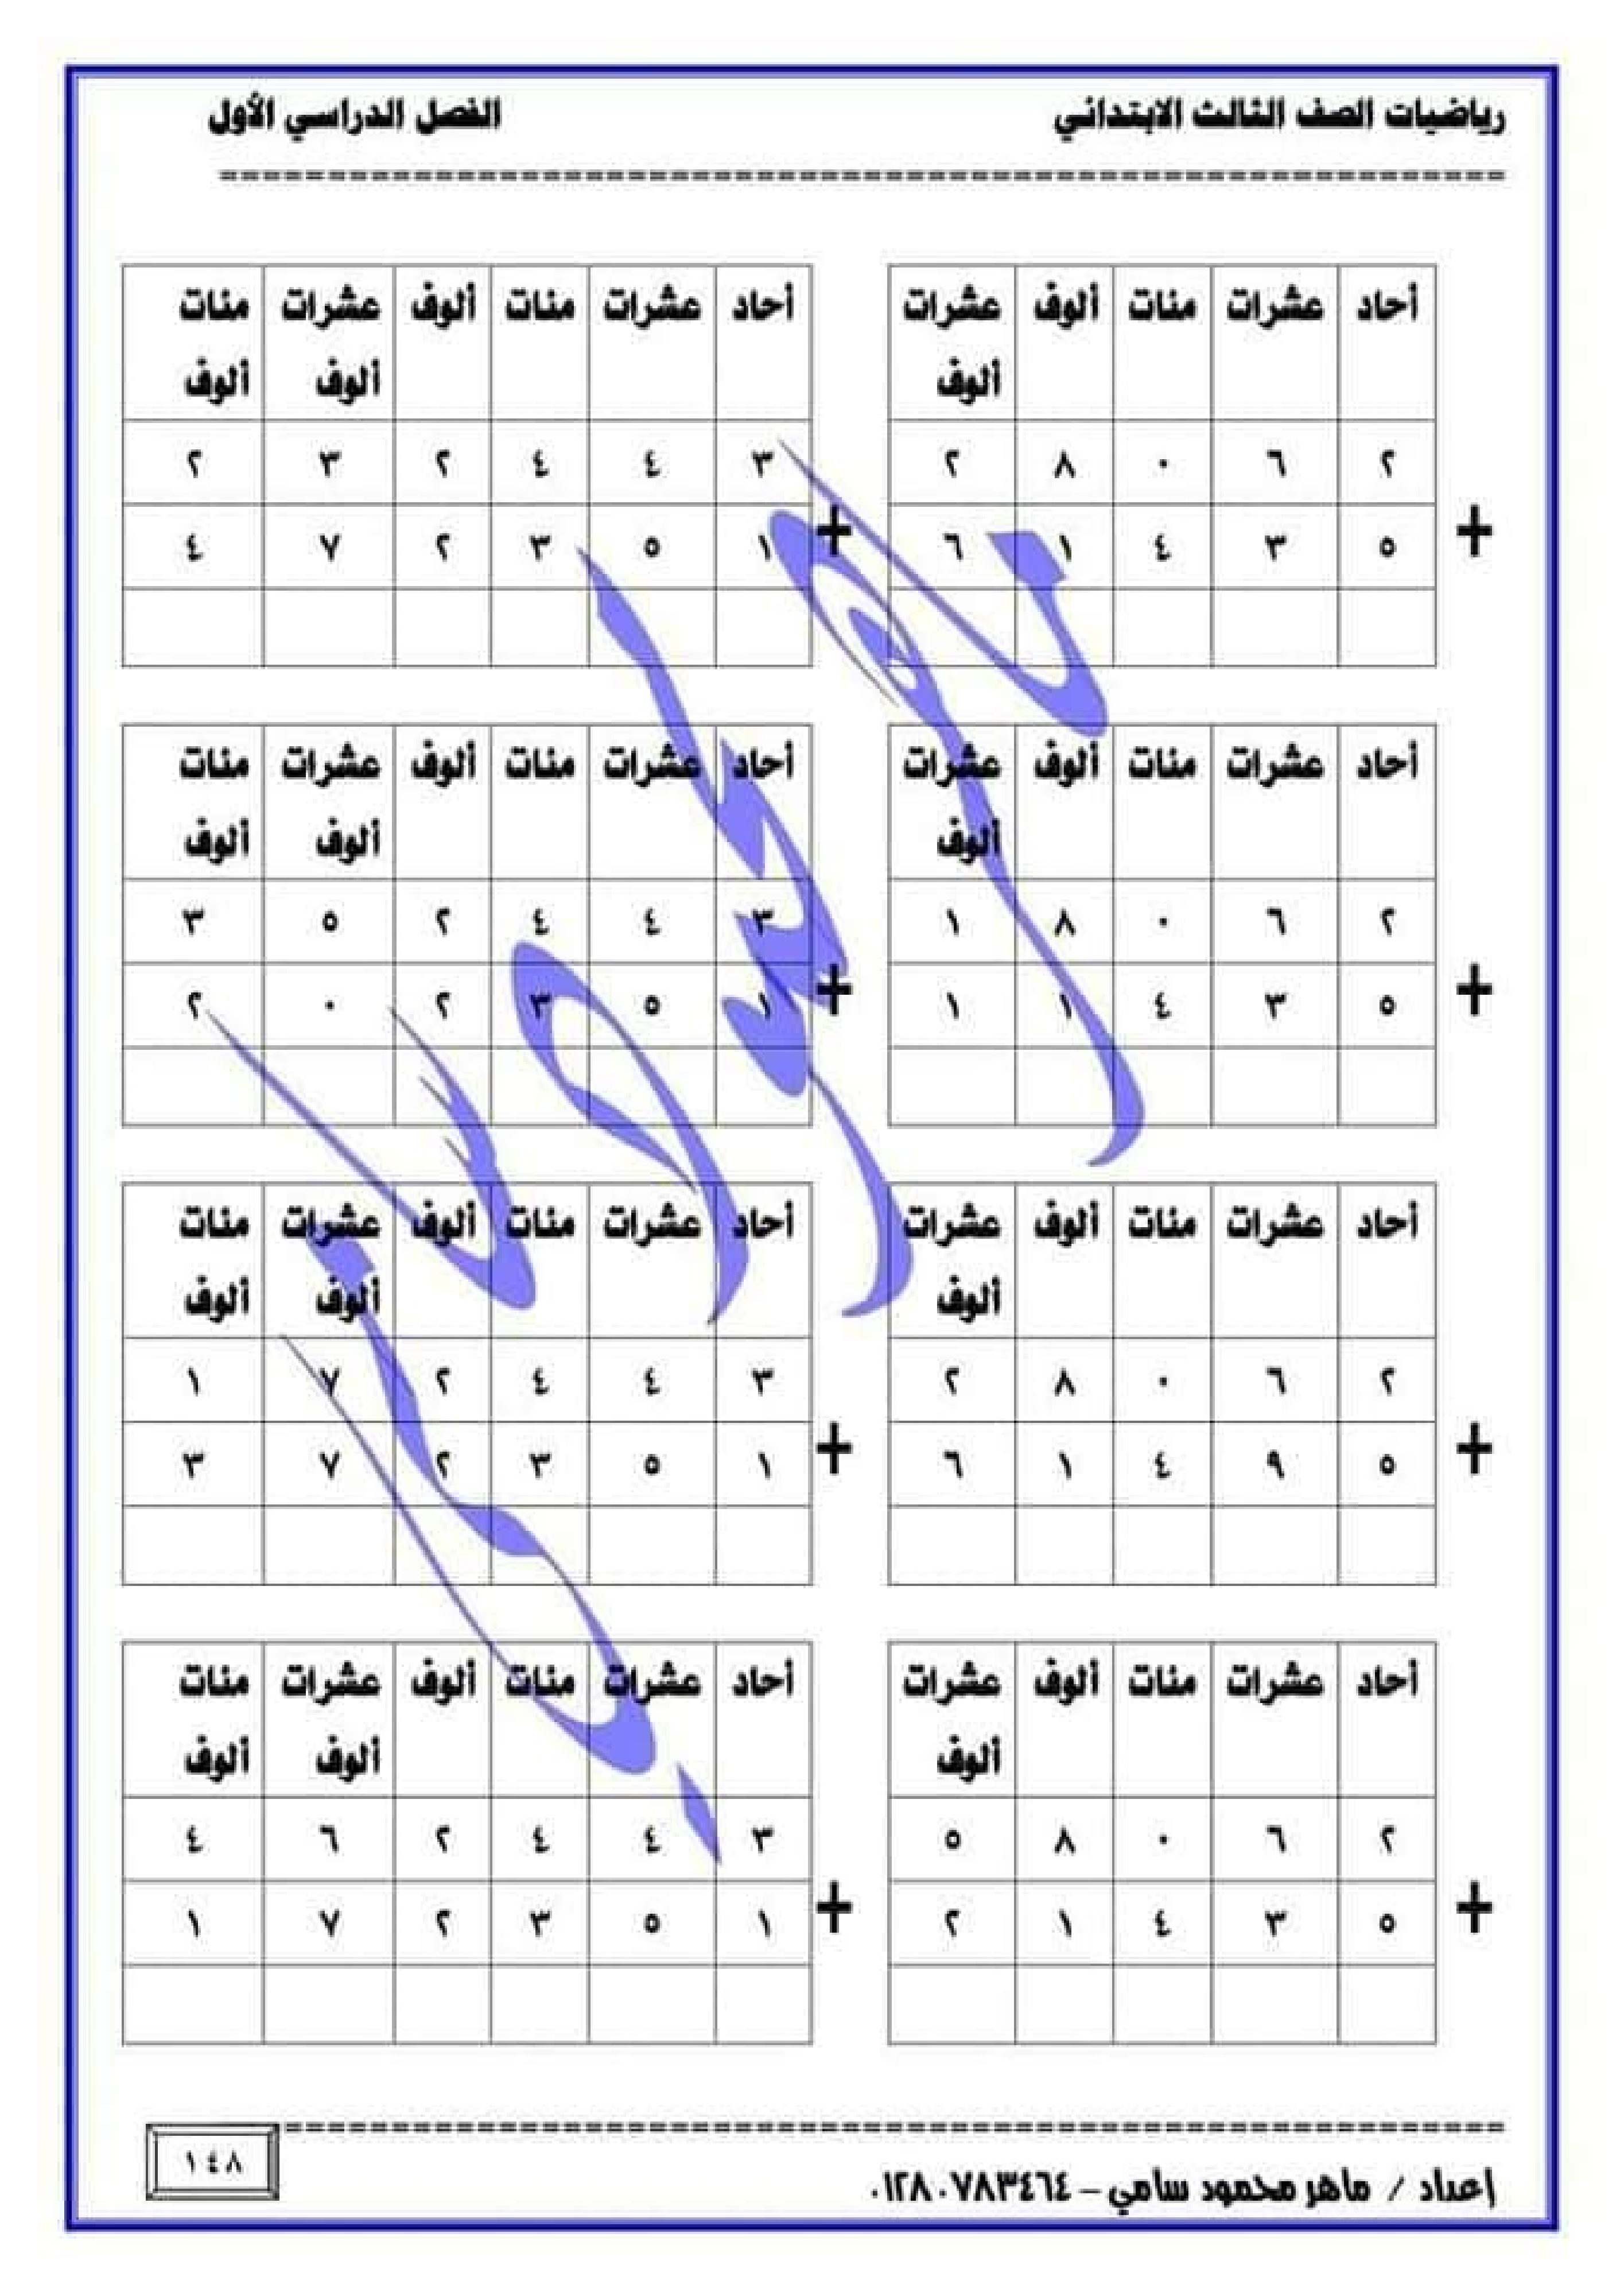 رياضيات الصف الثالث الابتدائي الفصل الدراسي الأول
أحاد عشرات مئات ألوف عشرات ألوف
٢ ٦ ٠ ٨ ٢
+ ٥ ٣ ٤ ١ ٦
أحاد عشرات مئات ألوف عشرات ألوف مئات ألوف
٣ ٤ ٤ ٢ ٣ ٢
+ ١ ٥ ٣ ٢ ٧ ٤
أحاد عشرات مئات ألوف عشرات ألوف
٢ ٦ ٠ ٨ ١
+ ٥ ٣ ٤ ١ ١
أحاد عشرات مئات ألوف عشرات ألوف مئات ألوف
٣ ٤ ٤ ٢ ٥ ٣
+ ١ ٥ ٣ ٢ ٠ ٢
أحاد عشرات مئات ألوف عشرات ألوف
٢ ٦ ٠ ٨ ٢
+ ٥ ٩ ٤ ١ ٦
أحاد عشرات مئات ألوف عشرات ألوف مئات ألوف
٣ ٤ ٤ ٢ ٧ ١
+ ١ ٥ ٣ ٢ ٧ ٣
أحاد عشرات مئات ألوف عشرات ألوف
٢ ٦ ٠ ٨ ٥
+ ٥ ٣ ٤ ١ ٢
أحاد عشرات مئات ألوف عشرات ألوف مئات ألوف
٣ ٤ ٤ ٢ ٦ ٤
+ ١ ٥ ٣ ٢ ٧ ١
إعداد / ماهر محمود سامي – ٠١٢٨٠٧٨٣٤٦٤
١٤٨